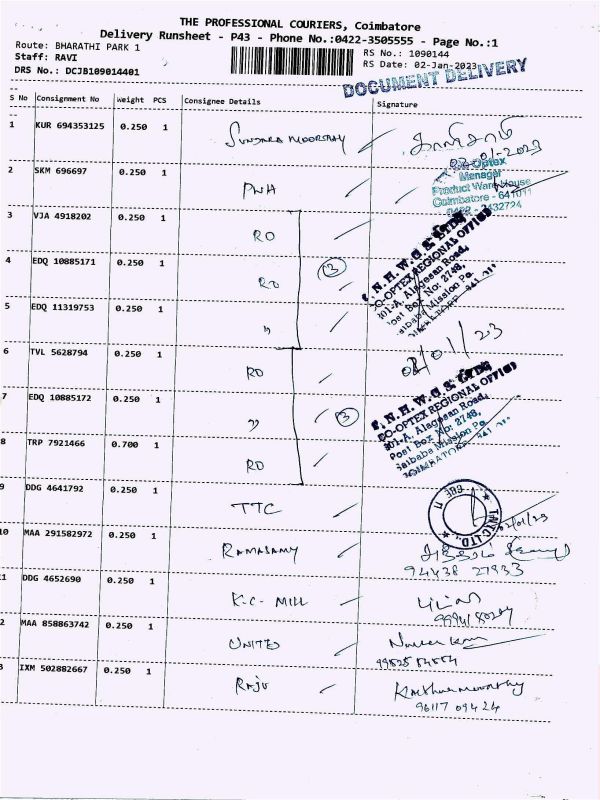 THE PROFESSIONAL COURIERS, Coimbatore
Delivery Runsheet - P43 - Phone No.:0422-3505555 - Page No.:1
Route: BHARATHI PARK 1 RS No.: 1090144
Staff: RAVI RS Date: 02-Jan-2023
DRS No.: DCJB109014401
DOCUMENT DELIVERY
S No Consignment No Weight PCS Consignee Details Signature
1 KUR 694353125 0.250 1 SUNDARA MOORTHY
02-01-2023
2 SKM 696697 0.250 1 PNA
Optex
Manager
Product Warehouse
Coimbatore - 641011
0422 - 2432724
3 VJA 4918202 0.250 1 RO
4 EDQ 10885171 0.250 1 RO 3
5 EDQ 11319753 0.250 1 "
T.N.H.W.C.S. LTD.
CO-OPTEX REGIONAL OFFICE
201-A, Alagesan Road,
Post Box No: 2748,
Saibaba Mission Po.
COIMBATORE - 641 011
02/01/23
6 TVL 5628794 0.250 1 RO
7 EDQ 10885172 0.250 1 " 3
8 TRP 7921466 0.700 1 RO
T.N.H.W.C.S. LTD.
CO-OPTEX REGIONAL OFFICE
201-A, Alagesan Road,
Post Box No: 2748,
Saibaba Mission Po.
COIMBATORE - 641 011
9 DDG 4641792 0.250 1 TTC
10 MAA 291582972 0.250 1 RAMASAMY
94438 27933
11 DDG 4652690 0.250 1 K.C. MILL
2 MAA 858863742 0.250 1 UNITED
3 IXM 502882667 0.250 1 RAJU
96117 09424